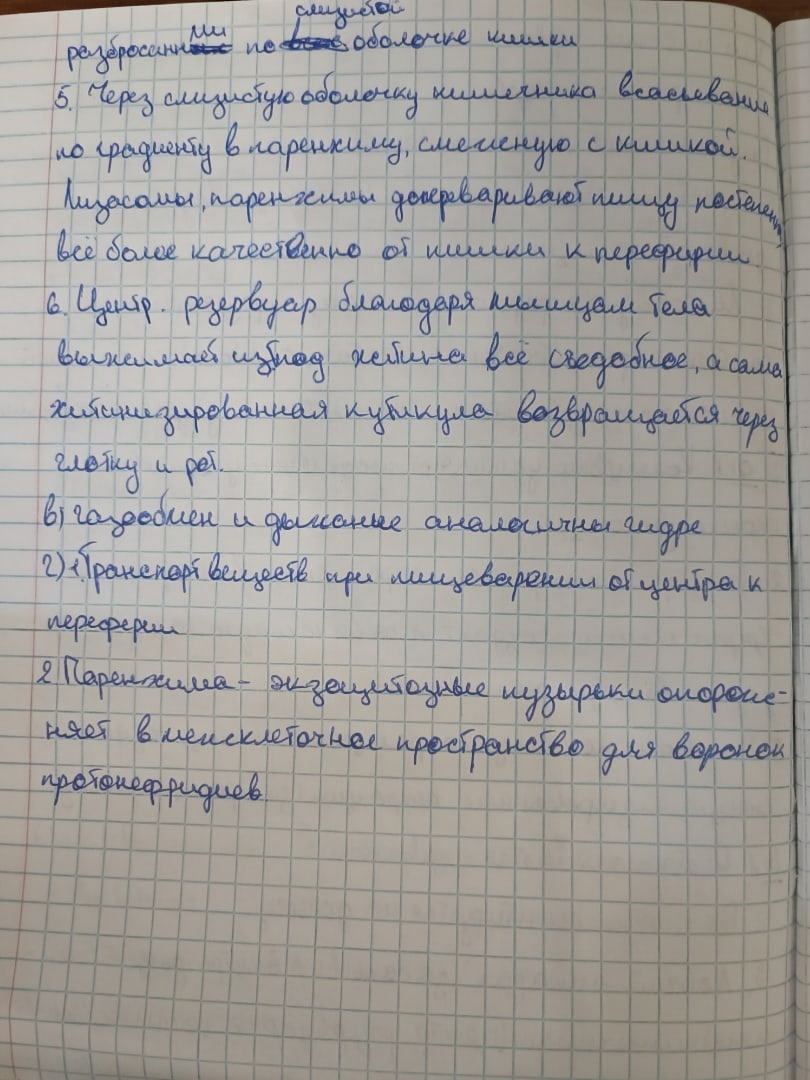 разбросанными по слизистой оболочке кишки
5. Через слизистую оболочку кишечника всасывание
по градиенту в паренхиму, смежную с кишкой.
Лизасомы, паренхимы доперваривают пищу постепенно
всё более качественно от кишки к перефирии.
6. Центр. резервуар благодаря мышцам тела
выжимает из под хитина всё съедобное, а сама
хитинизированная кутикула возвращается через
глотку и рот.
в) газообмен и дыхание аналогичны гидре
г) 1. Транспорт веществ при пищеварении от центра к
переферии
2 Паренхима - экзоцитозные пузырьки опорож-
няет в межклеточное пространство для воронок
протонефридиев.